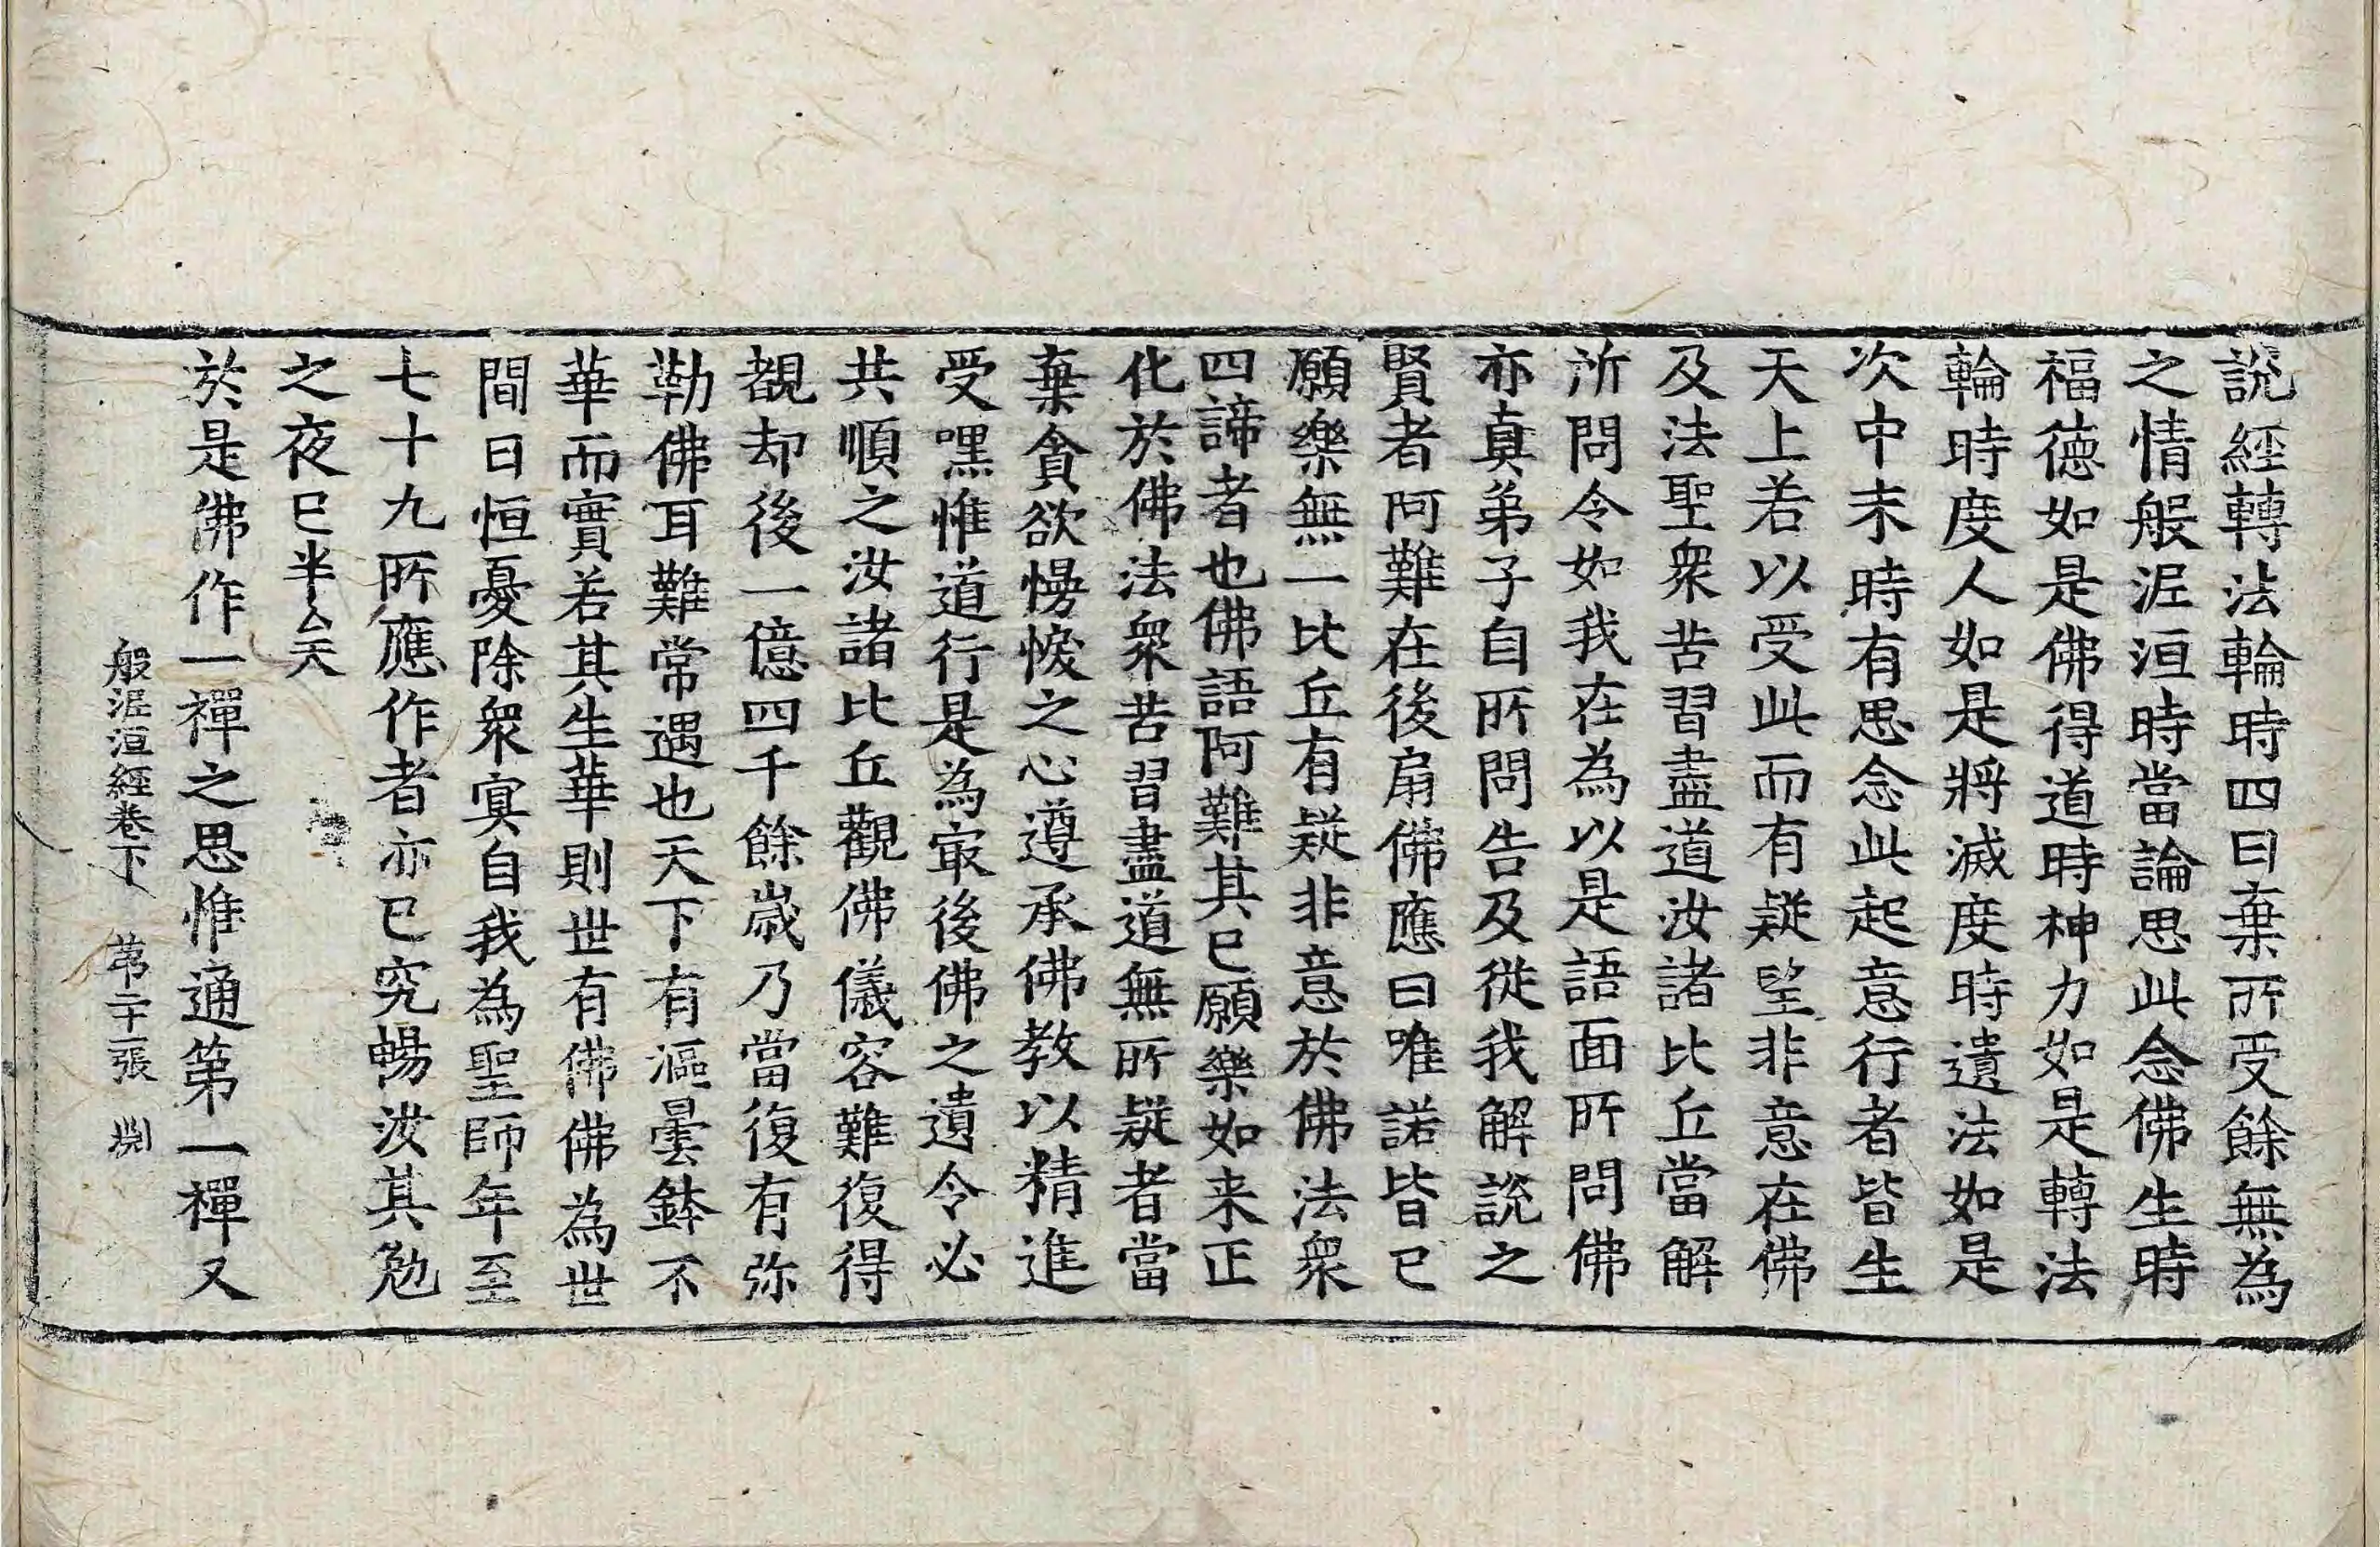 說經轉法輪時四曰棄所受餘無為
之情般泥洹時當論思此念佛生時
福徳如是佛得道時神力如是轉法
輪時度人如是將滅度時遺法如是
次中末時有思念此起意行者皆生
天上若以受此而有疑望非意在佛
及法聖衆苦習盡道汝諸比丘當解
所問令如我在為以是語面所問佛
亦真弟子自所問告及從我解說之
賢者阿難在後扇佛應曰唯諾皆已
願樂無一比丘有疑非意於佛法衆
四諦者也佛語阿難其已願樂如来正
化於佛法衆苦習盡道無所疑者當
棄貪欲慢㤥之心遵承佛教以精進
受嘿惟道行是為㝡後佛之遺令必
共順之汝諸比丘觀佛儀容難復得
覩却後一億四千餘歳乃當復有弥
勒佛耳難常遇也天下有漚曇鉢不
華而實若其生華則世有佛佛為世
間日恒憂除衆㝠自我為聖師年至
七十九所應作者亦已究暢汝其勉
之夜已半矣
於是佛作一禪之思惟通第一禪又
般泥洹經卷下 第二十一張 淵